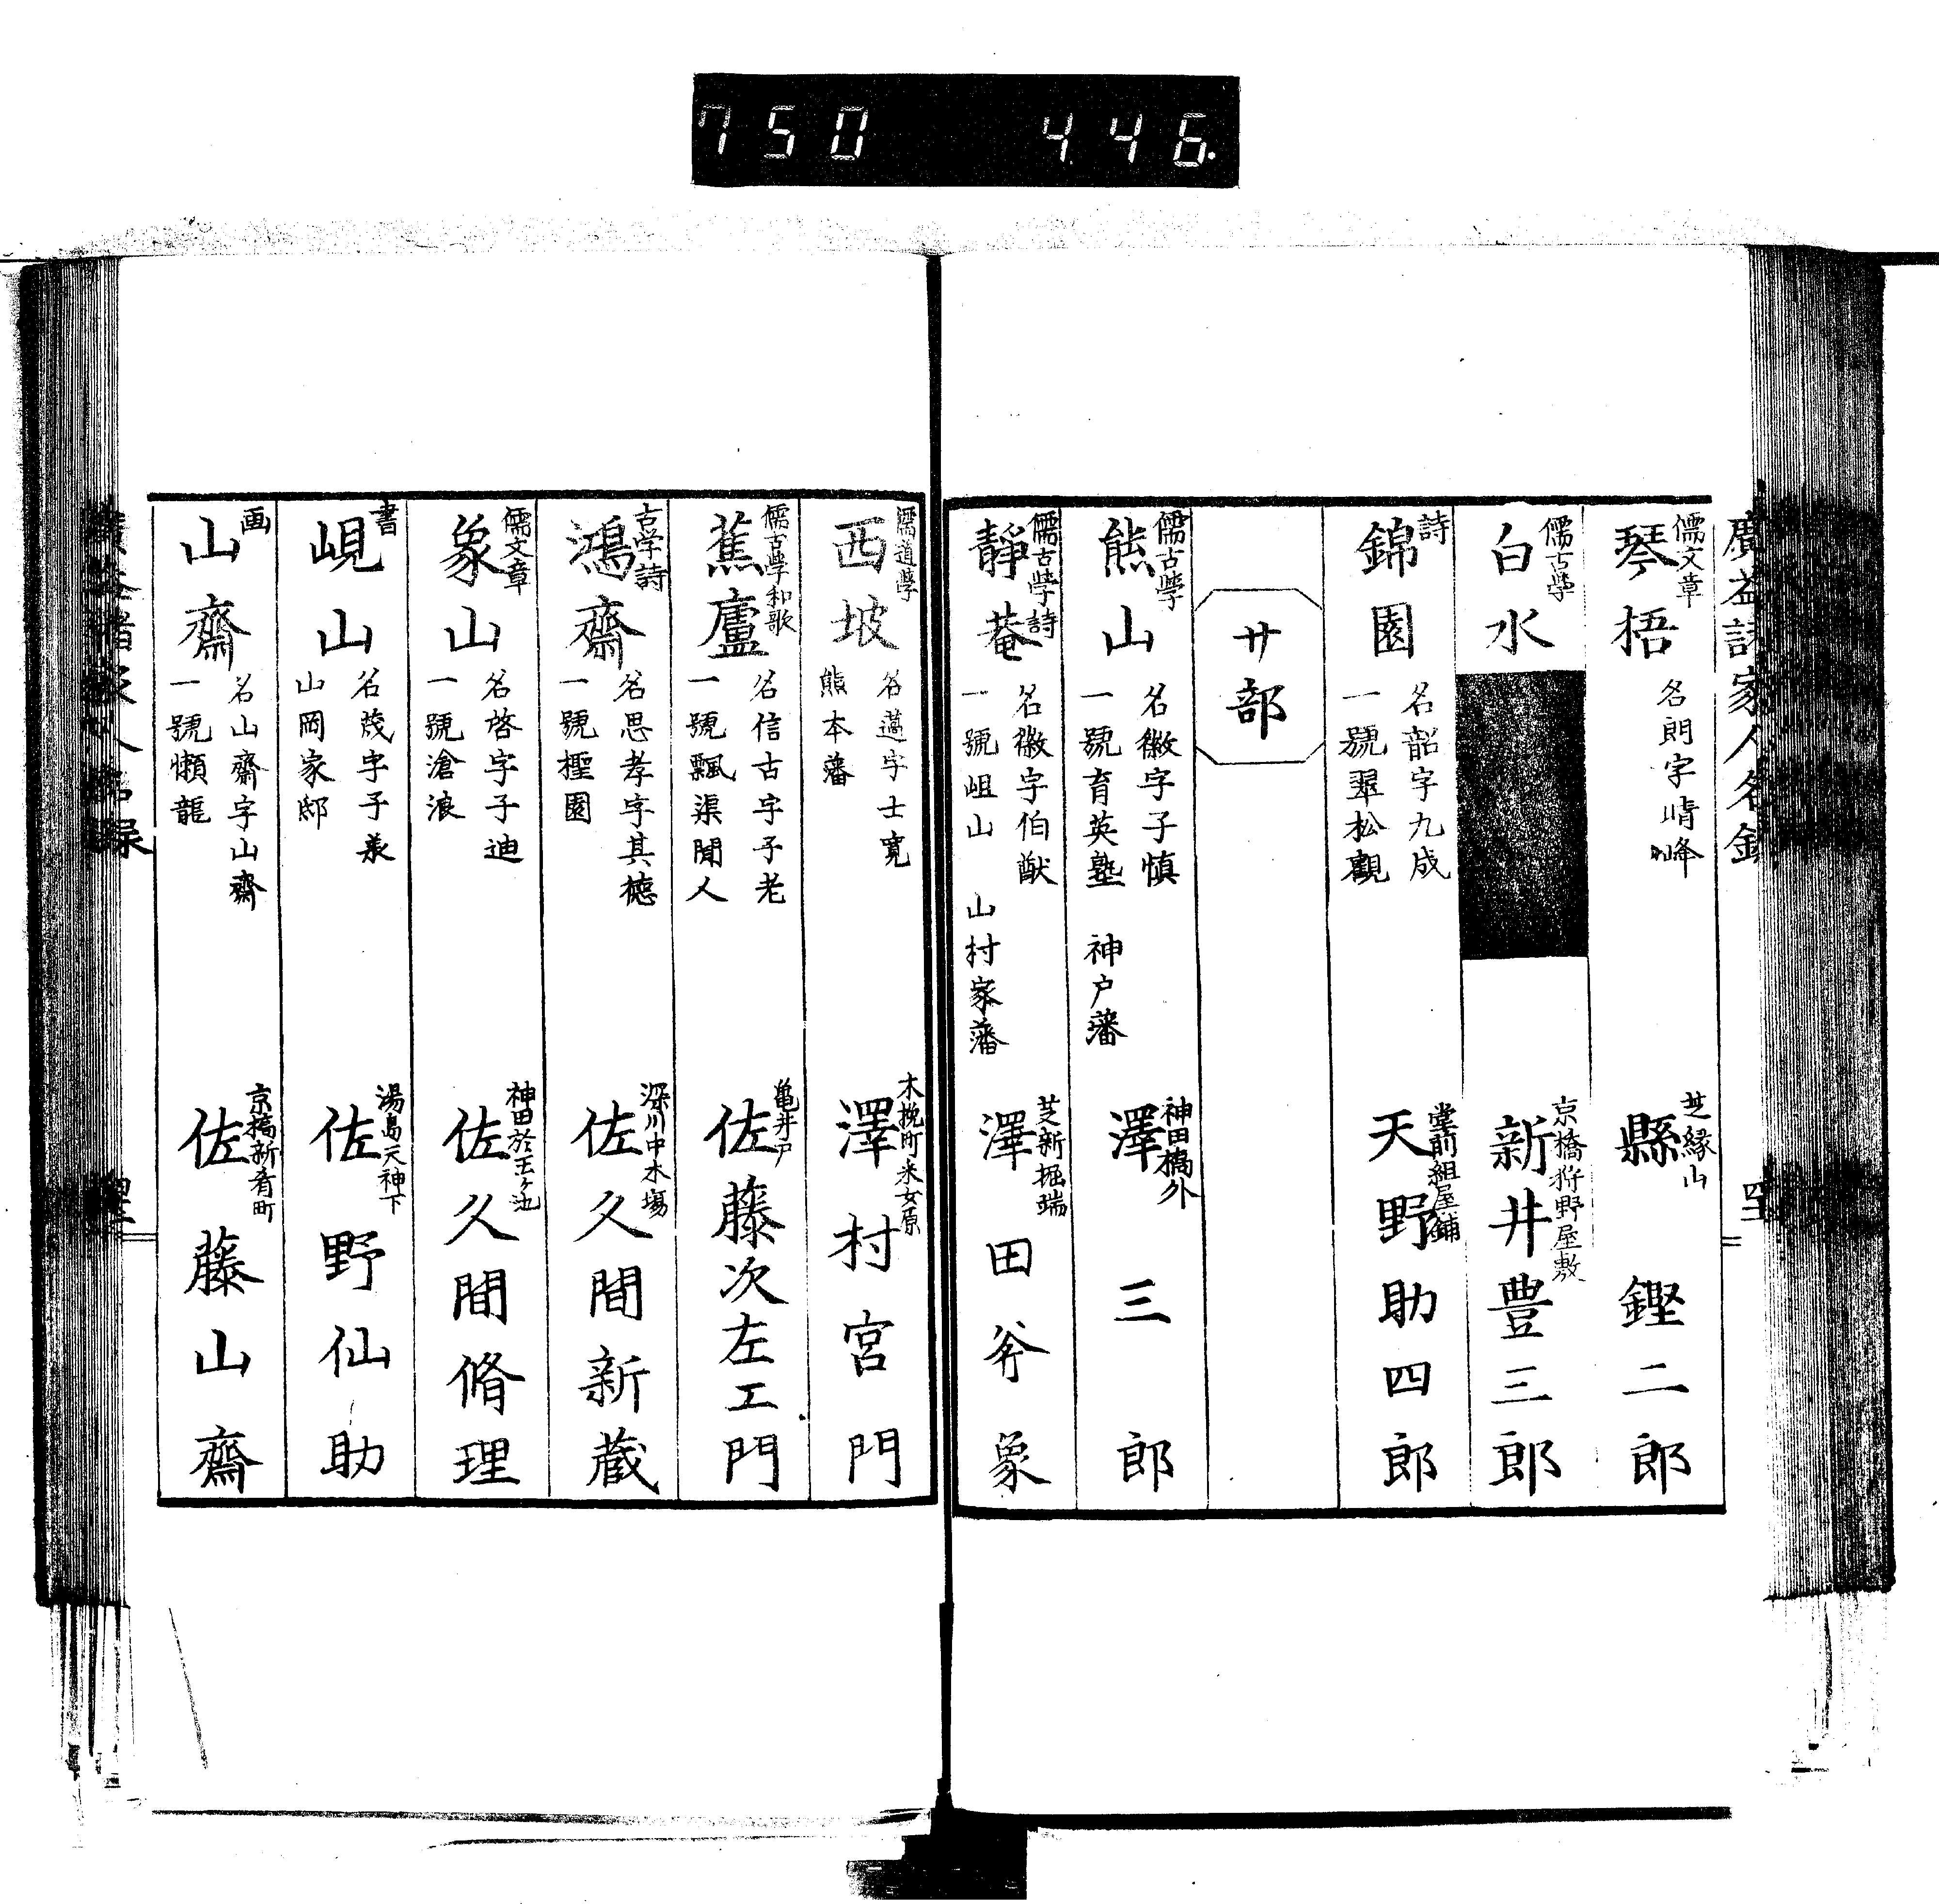 750 446.
廣益諸家人名録
四十三
儒文章
琴梧
名朗字晴峰
芝縁山
縣鏗二郎
儒古學
白水
京橋狩野屋敷
新井豊三郎
詩
錦園
名韶字九成
一號翠松觀
堂前組屋鋪
天野助四郎
サ部
儒古學
熊山
名徽字子慎
一號育英塾 神戸藩
神田橋外
澤三郎
儒古學詩
靜菴
名徽字伯猷
一號岨山 山村家藩
芝新堀端
澤田谷象
儒道學
西坡
名邁字士寛
熊本藩
木挽町釆女原
澤村宮門
儒古學和歌
蕉廬
名信古字子老
一號飄渠聞人
亀井戸
佐藤次左エ門
古学詩
鴻齋
名思孝字其德
一號檉園
深川中木場
佐久間新蔵
儒文章
象山
名啓字子迪
一號滄浪
神田於玉ヶ池
佐久間脩理
書
峴山
名茂字子羕
山岡家邸
湯島天神下
佐野仙助
画
山齋
名山齋字山齋
一號懶龍
京橋新肴町
佐藤山齋
廣益諸家人名録